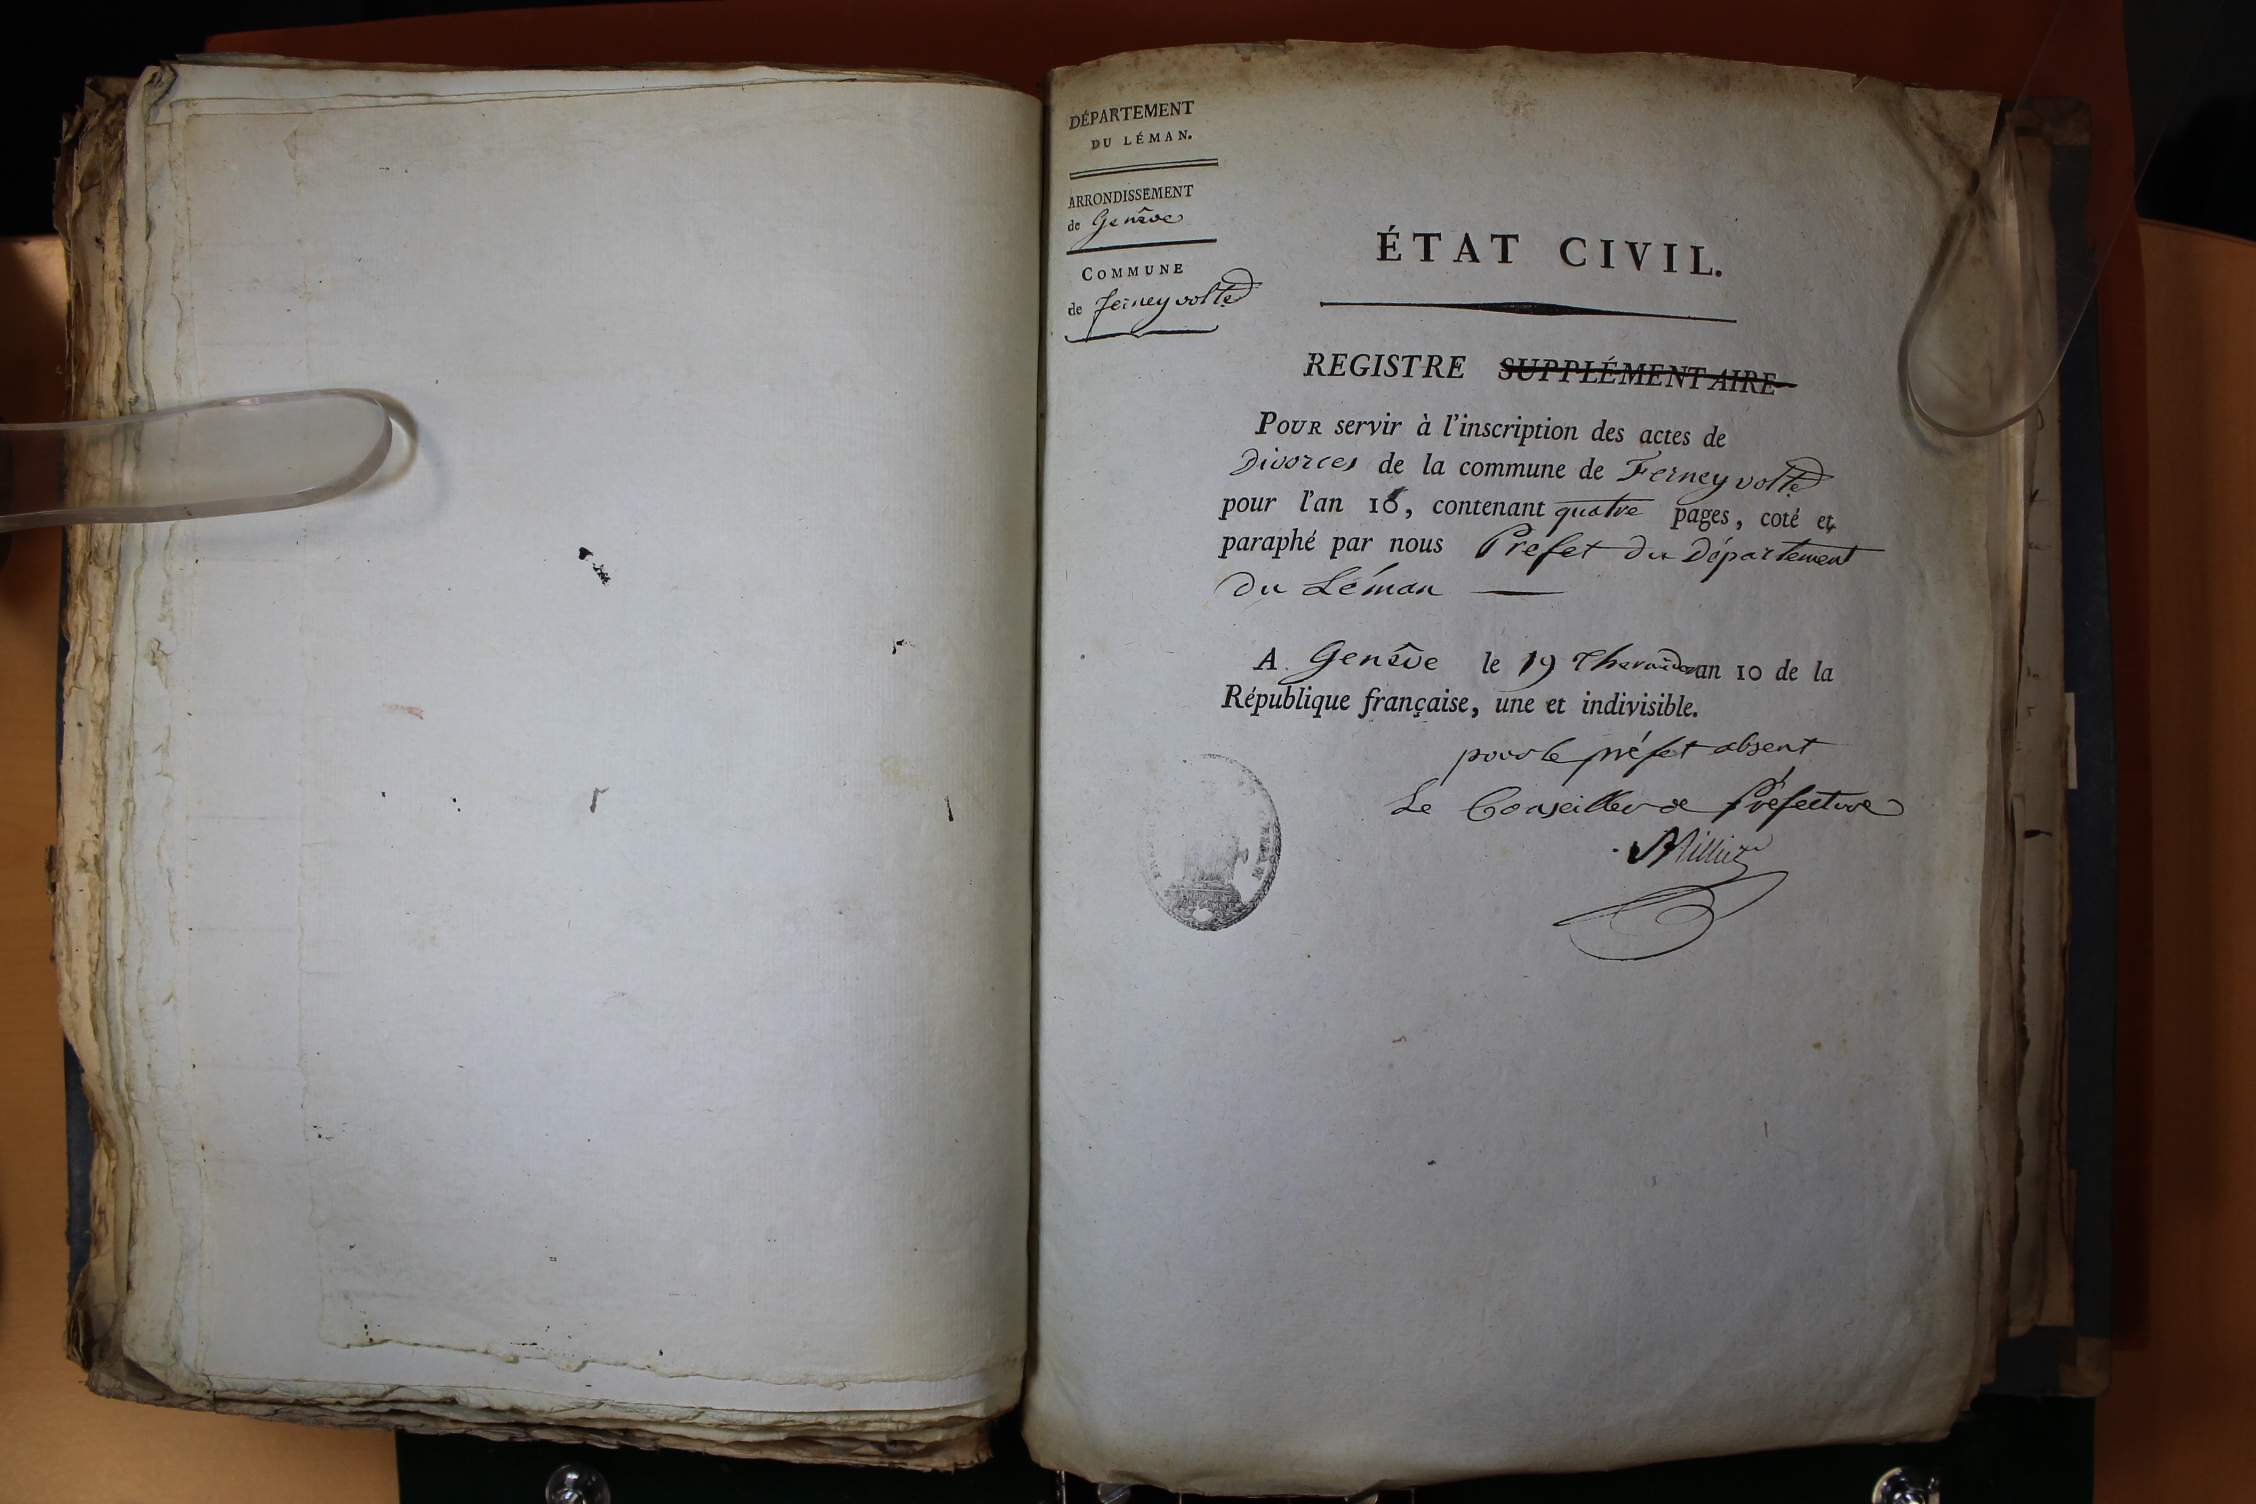 DÉPARTEMENT
DU LÉMAN.
ARRONDISSEMENT
de Genêve
COMMUNE
de ferney volte
ÉTAT CIVIL.
REGISTRE SUPPLÉMENTAIRE
POUR servir à l'inscription des actes de
Divorces de la commune de Ferney volte
pour l'an , contenant quatre pages, coté et
paraphé par nous Prefet du Département
du Léman
A Genêve le 19 an 10 de la
République française, une et indivisible.
pour le préfet absent
Le Conseiller de Préfecture